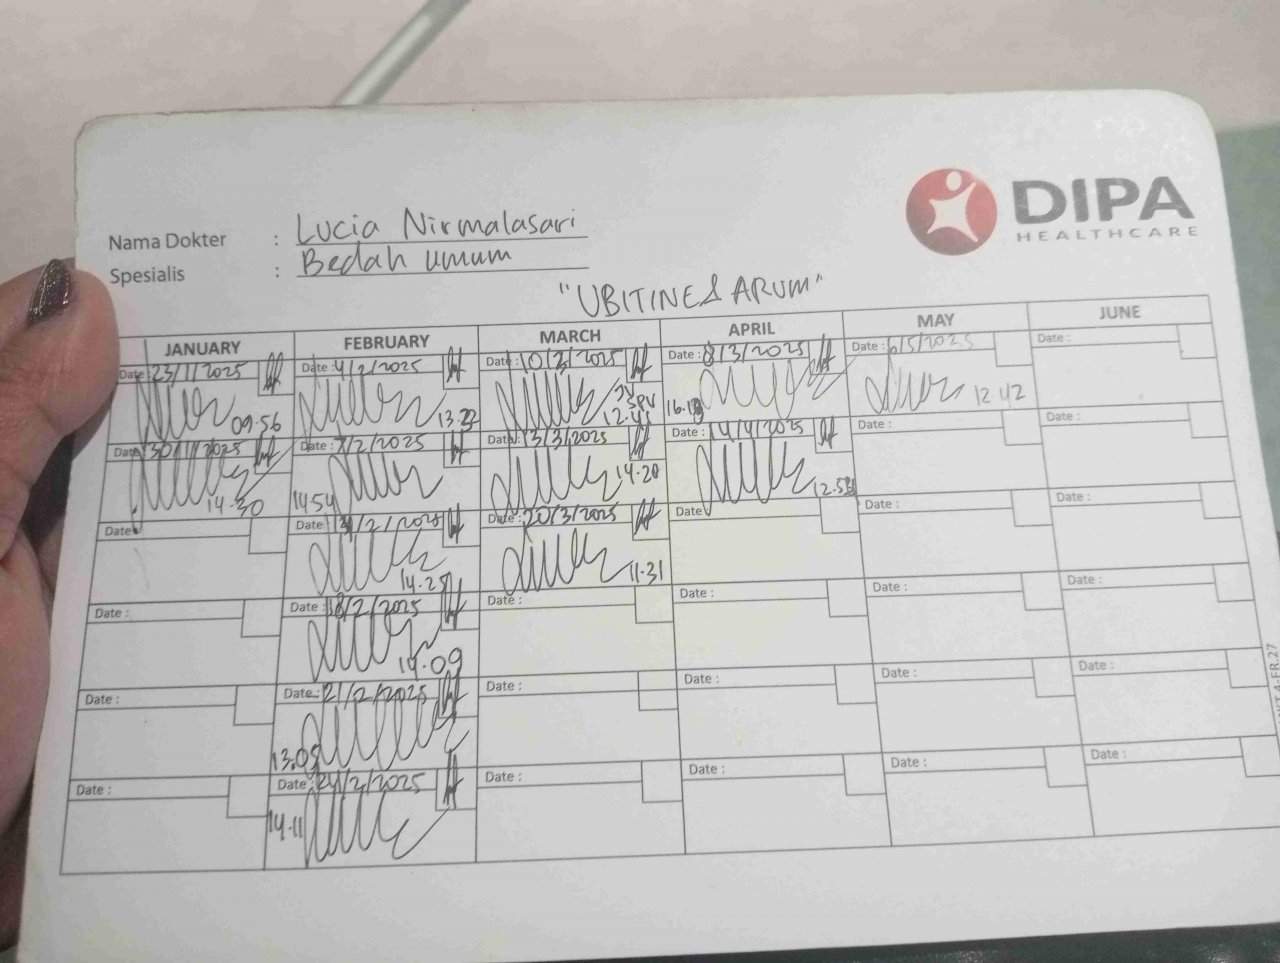 DIPA
HEALTHCARE
Nama Dokter : Lucia Nirmalasari
Spesialis : Bedah umum
"UBITINE & ARUM"
JANUARY FEBRUARY MARCH APRIL MAY JUNE
Date : 23/1/2025 Date : 4/2/2025 Date : 10/3/2025 Date : 8/3/2025 Date : 6/5/2025 Date :
09.56 13.22 JV SPV 12.41 16.18 12 42
Date : 30/1/2025 Date : 7/2/2025 Date : 13/3/2025 Date : 14/4/2025 Date : Date :
14.30 14.54 14.20
Date : Date : /2/2025 Date : 20/3/2025 Date : Date : Date :
14.25 11.31
Date : Date : 18/2/2025 Date : Date : Date : Date :
14.09
Date : Date : 21/2/2025 Date : Date : Date : Date :
13.05
Date : Date : 24/2/2025 Date : Date : Date : Date :
14.11